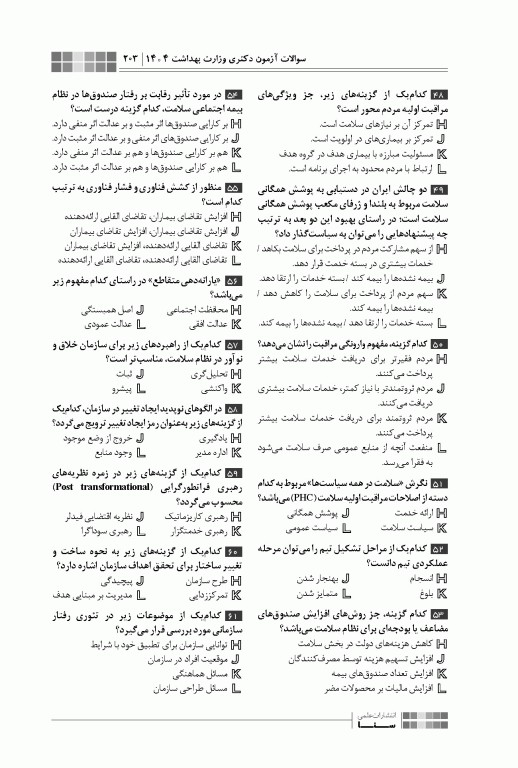 سوالات آزمون دکتری وزارت بهداشت ۱۴۰۴ | ۲۰۳
۴۸ کدام‌یک از گزینه‌های زیر، جز ویژگی‌های
مراقبت اولیه مردم محور است؟
H تمرکز آن بر نیازهای سلامت است.
J تمرکز بر بیماری‌های در اولویت است.
K مسئولیت مبارزه با بیماری هدف در گروه هدف
L ارتباط با مردم محدود به اجرای برنامه است.
۴۹ دو چالش ایران در دستیابی به پوشش همگانی
سلامت مربوط به بلندا و ژرفای مکعب پوشش همگانی
سلامت است؛ در راستای بهبود این دو بعد به ترتیب
چه پیشنهادهایی را می‌توان به سیاست‌گذار داد؟
H از سهم مشارکت مردم در پرداخت برای سلامت بکاهد /
خدمات بیشتری در بسته خدمت قرار دهد.
J بیمه نشده‌ها را بیمه کند / بسته خدمات را ارتقا دهد.
K سهم مردم از پرداخت برای سلامت را کاهش دهد /
بیمه نشده‌ها را بیمه کند.
L بسته خدمات را ارتقا دهد / بیمه نشده‌ها را بیمه کند.
۵۰ کدام گزینه، مفهوم وارونگی مراقبت را نشان می‌دهد؟
H مردم فقیرتر برای دریافت خدمات سلامت بیشتر
پرداخت می‌کنند.
J مردم ثروتمندتر با نیاز کمتر، خدمات سلامت بیشتری
دریافت می‌کنند.
K مردم ثروتمند برای دریافت خدمات سلامت بیشتر
پرداخت می‌کنند.
L منفعت آنچه از منابع عمومی صرف سلامت می‌شود
به فقرا می‌رسد.
۵۱ نگرش «سلامت در همه سیاست‌ها» مربوط به کدام
دسته از اصلاحات مراقبت اولیه سلامت (PHC) می‌باشد؟
H ارائه خدمت J پوشش همگانی
K سیاست سلامت L سیاست عمومی
۵۲ کدام‌یک از مراحل تشکیل تیم را می‌توان مرحله
عملکردی تیم دانست؟
H انسجام J بهنجار شدن
K بلوغ L متمایز شدن
۵۳ کدام گزینه، جز روش‌های افزایش صندوق‌های
مضاعف یا بودجه‌ای برای نظام سلامت می‌باشد؟
H کاهش هزینه‌های دولت در بخش سلامت
J افزایش تسهیم هزینه توسط مصرف‌کنندگان
K افزایش تعداد صندوق‌های بیمه
L افزایش مالیات بر محصولات مضر
۵۴ در مورد تأثیر رقابت بر رفتار صندوق‌ها در نظام
بیمه اجتماعی سلامت، کدام گزینه درست است؟
H بر کارایی صندوق‌ها اثر مثبت و بر عدالت اثر منفی دارد.
J بر کارایی صندوق‌های اثر منفی و بر عدالت اثر مثبت دارد.
K هم بر کارایی صندوق‌ها و هم بر عدالت اثر منفی دارد.
L هم بر کارایی صندوق‌ها و هم بر عدالت اثر مثبت دارد.
۵۵ منظور از کشش فناوری و فشار فناوری به ترتیب
کدام است؟
H افزایش تقاضای بیماران، تقاضای القایی ارائه‌دهنده
J افزایش تقاضای بیماران، افزایش تقاضای بیماران
K تقاضای القایی ارائه‌دهنده، افزایش تقاضای بیماران
L تقاضای القایی ارائه‌دهنده، تقاضای القایی ارائه‌دهنده
۵۶ «یارانه‌دهی متقاطع» در راستای کدام مفهوم زیر
می‌باشد؟
H محافظت اجتماعی J اصل همبستگی
K عدالت افقی L عدالت عمودی
۵۷ کدام‌یک از راهبردهای زیر برای سازمان خلاق و
نوآور در نظام سلامت، مناسب‌تر است؟
H تحلیل‌گری J ثبات
K واکنشی L پیشرو
۵۸ در الگوهای نوپدید ایجاد تغییر در سازمان، کدام‌یک
از گزینه‌های زیر به‌عنوان رمز ایجاد تغییر ترویج می‌گردد؟
H یادگیری J خروج از وضع موجود
K اداره مدیر L وجود منابع
۵۹ کدام‌یک از گزینه‌های زیر در زمره نظریه‌های
رهبری فراتطورگرایی (Post transformational)
محسوب می‌گردد؟
H رهبری کاریزماتیک J نظریه اقتضایی فیدلر
K رهبری خدمتگزار L رهبری سوداگرا
۶۰ کدام‌یک از گزینه‌های زیر به نحوه ساخت و
تغییر ساختار برای تحقق اهداف سازمان اشاره دارد؟
H طرح سازمان J پیچیدگی
K تمرکززدایی L مدیریت بر مبنای هدف
۶۱ کدام‌یک از موضوعات زیر در تئوری رفتار
سازمانی مورد بررسی قرار می‌گیرد؟
H توانایی سازمان برای تطبیق خود با شرایط
J موقعیت افراد در سازمان
K مسائل هماهنگی
L مسائل طراحی سازمان
انتشارات علمی
سـنـا